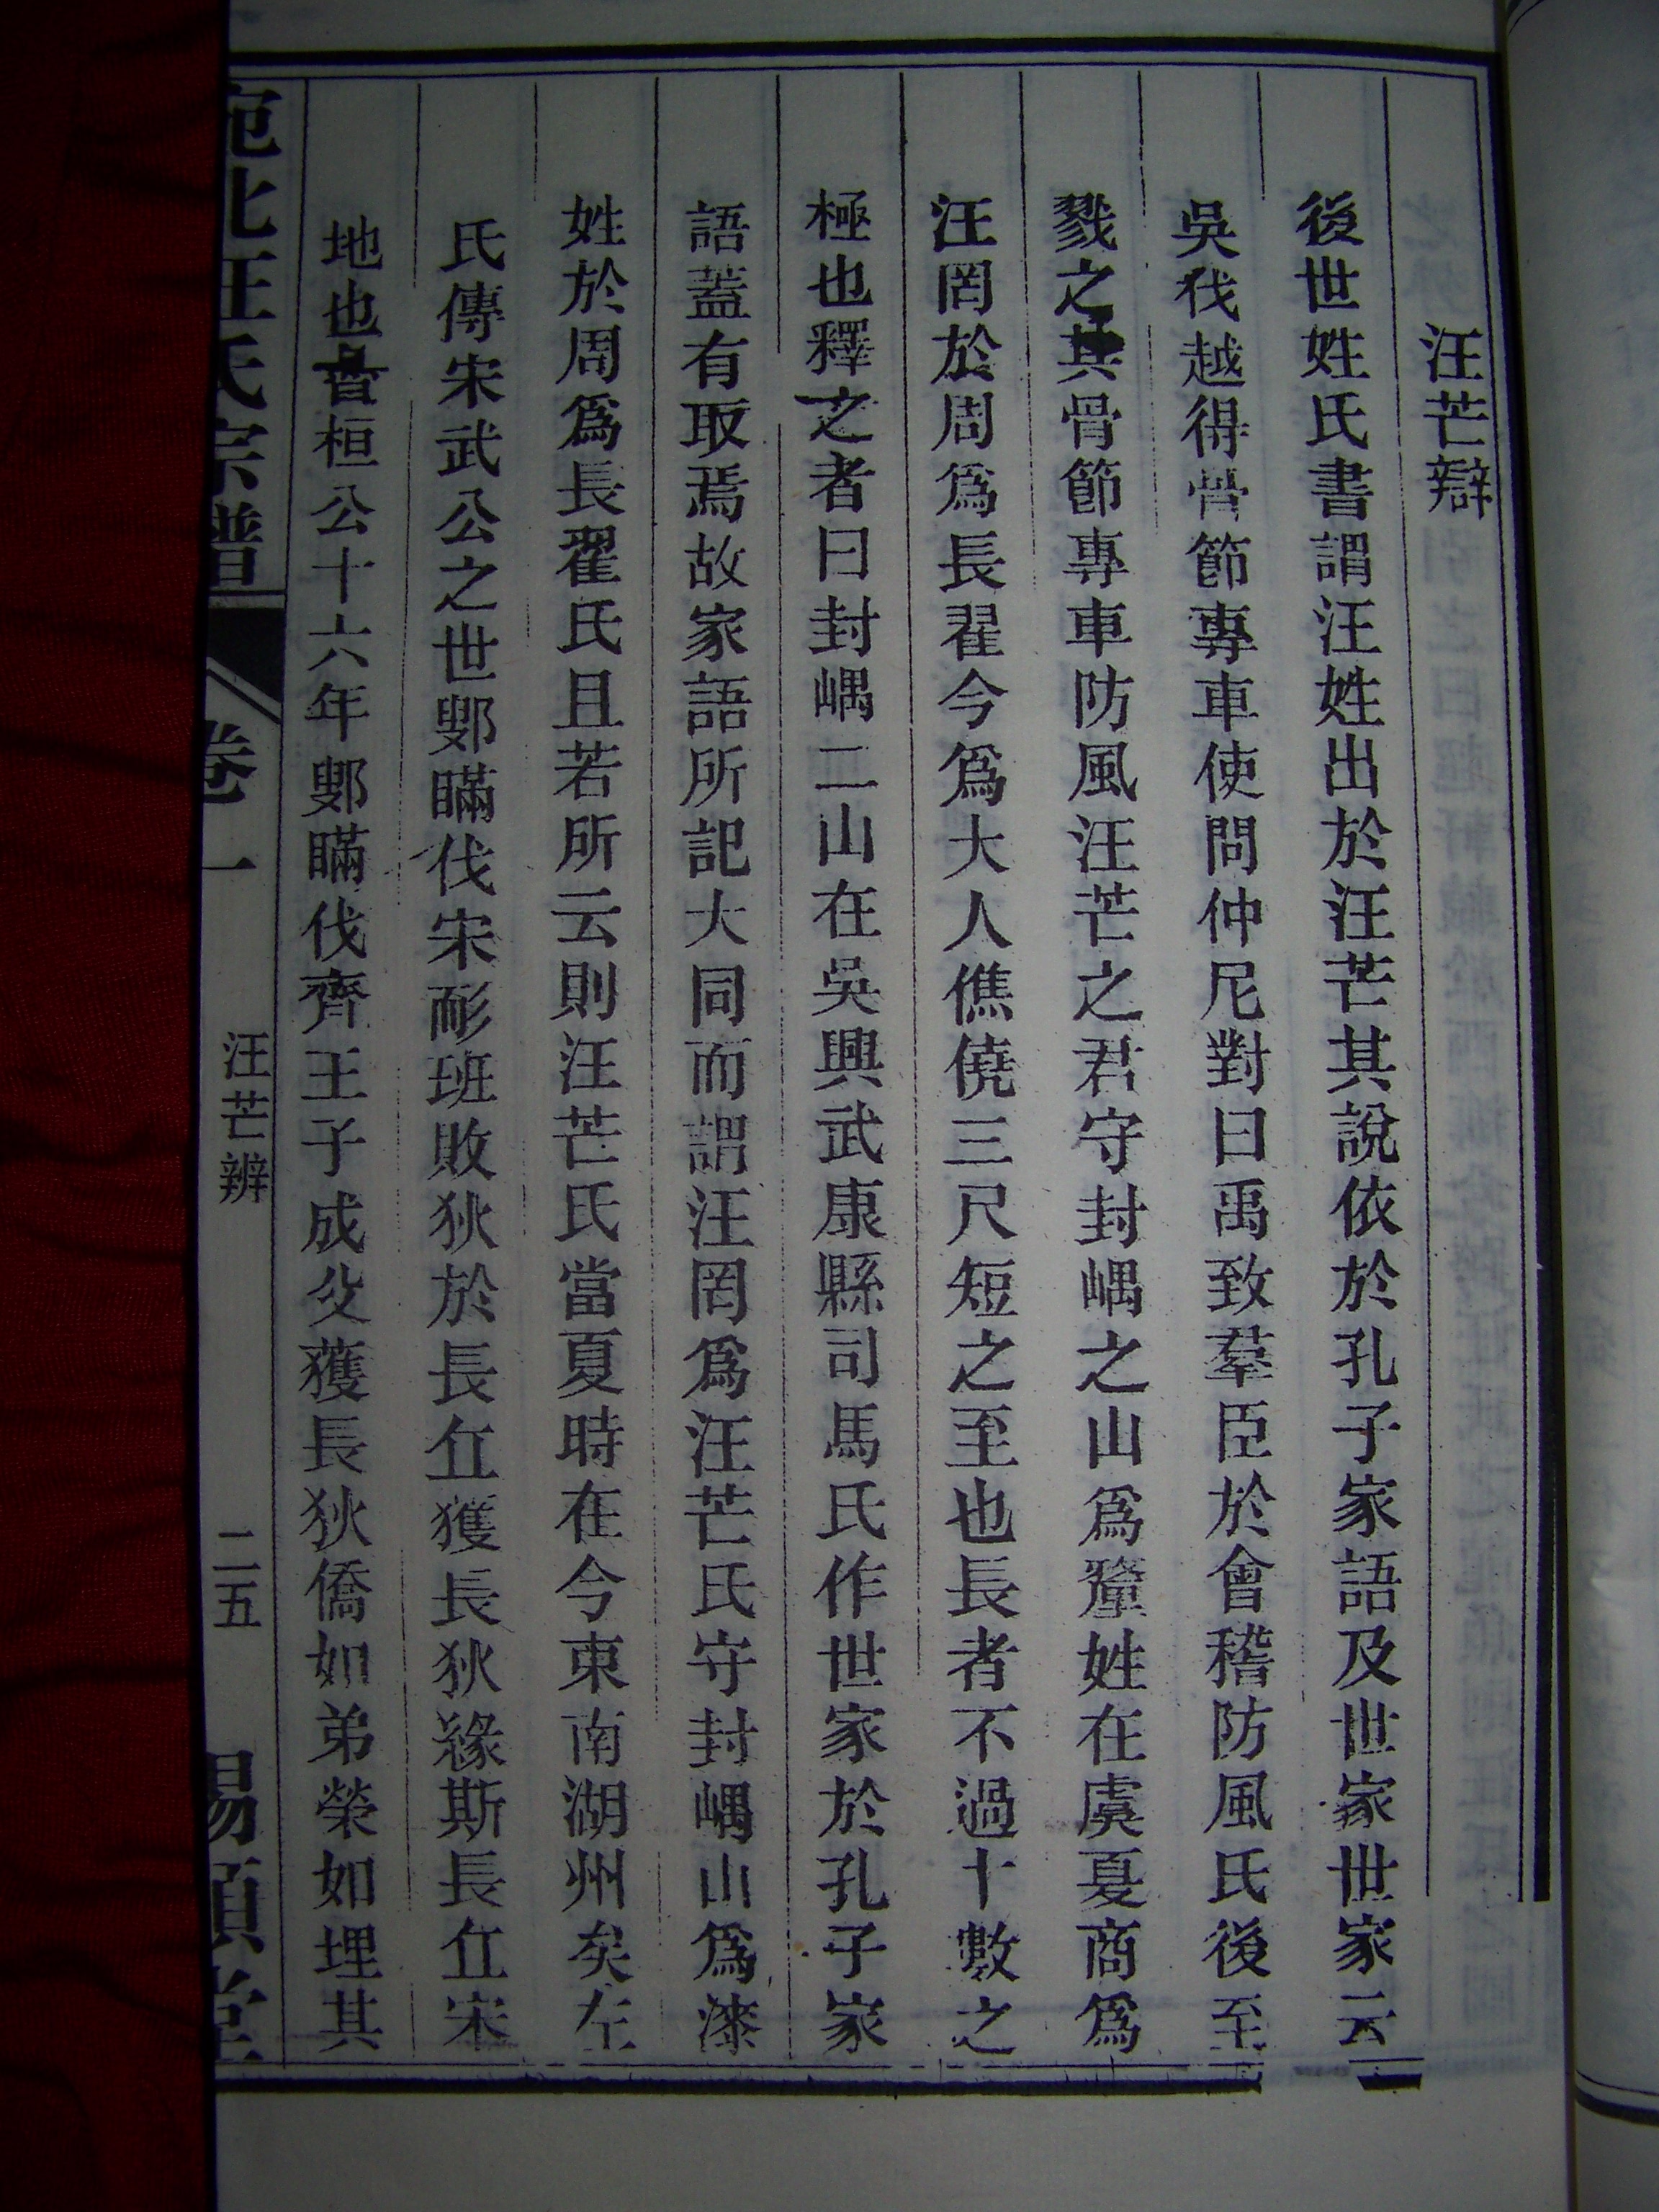 汪芒辯
後世姓氏書謂汪姓出於汪芒其說依於孔子家語及世家世家云
吳伐越得骨節專車使問仲尼對曰禹致羣臣於會稽防風氏後至
戮之其骨節專車防風汪芒之君守封嵎之山爲釐姓在虞夏商爲
汪罔於周爲長翟今爲大人僬僥三尺短之至也長者不過十數之
極也釋之者曰封嵎二山在吳興武康縣司馬氏作世家於孔子家
語蓋有取焉故家語所記大同而謂汪罔爲汪芒氏守封嵎山爲漆
姓於周爲長翟氏且若所云則汪芒氏當夏時在今東南湖州矣左
氏傳宋武公之世鄋瞞伐宋耏班敗狄於長丘獲長狄緣斯長丘宋
地也晉桓公十六年鄋瞞伐齊王子成父獲長狄僑如弟榮如埋其
北汪氏宗譜 卷一 汪芒辨 二五